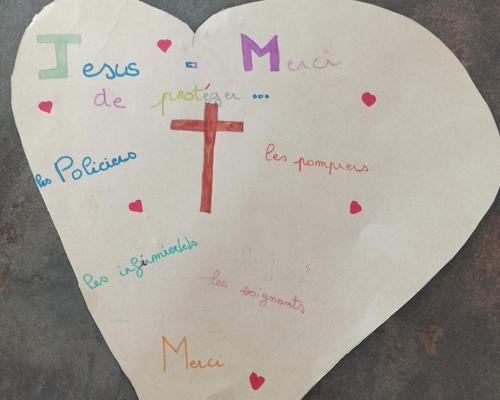 Jesus : Merci
de protéger ...
les Policiers
les pompiers
les infirmier(e)s
les soignants
Merci